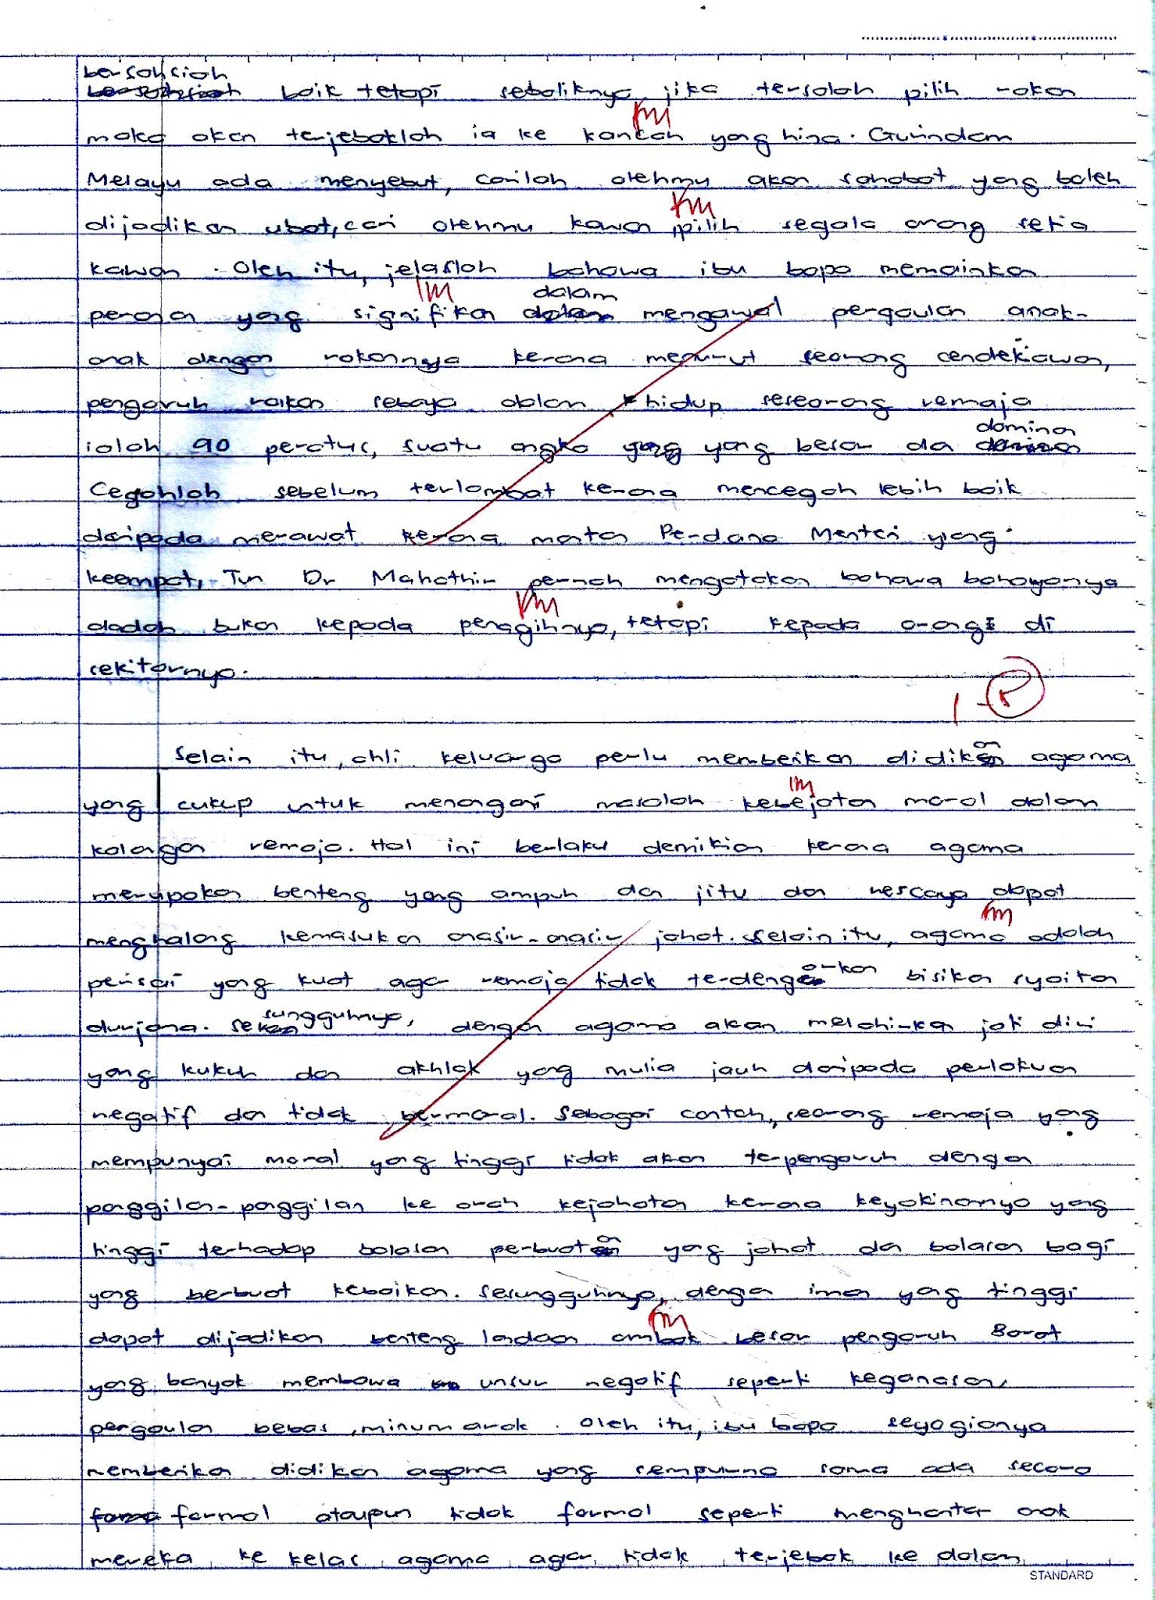 bersahsiah
bersahsiah baik tetapi sebaliknya jika tersalah pilih rakan
KM
maka akan terjebaklah ia ke kancah yang hina. Gurindam
Melayu ada menyebut, carilah olehmu akan sahabat yang boleh
KM
dijadikan ubat, cari olehmu kawan pilih segala orang setia
kawan. Oleh itu, jelaslah bahawa ibu bapa memainkan
KM dalam
peranan yang signifikan dalam mengawal pergaulan anak-
anak dengan rakannya kerana menurut seorang cendekiawan,
pengaruh rakan sebaya dalam hidup seseorang remaja
dominan
ialah 90 peratus, suatu angka yang yang besar dan dominan
Cegahlah sebelum terlambat kerana mencegah lebih baik
daripada merawat kerana mantan Perdana Menteri yang
keempat, Tun Dr Mahathir pernah mengatakan bahawa bahayanya
KM
dadah bukan kepada penagihnya, tetapi kepada orang di
sekitarnya.
Selain itu, ahli keluarga perlu memberikan didikan agama
KM
yang cukup untuk menangani masalah kebejatan moral dalam
kalangan remaja. Hal ini berlaku demikian kerana agama
merupakan benteng yang ampuh dan jitu dan nescaya dapat
KM
menghalang kemasukan anasir-anasir jahat. Selain itu, agama adalah
perisai yang kuat agar remaja tidak terdengarkan bisikan syaitan
durjana. Sesungguhnya, dengan agama akan melahirkan jati diri
yang kukuh dan akhlak yang mulia jauh daripada perlakuan
negatif dan tidak bermoral. Sebagai contoh, seorang remaja yang
mempunyai moral yang tinggi tidak akan terpengaruh dengan
panggilan-panggilan ke arah kejahatan kerana keyakinannya yang
tinggi terhadap balasan perbuatan yang jahat dan balasan bagi
yang berbuat kebaikan. Sesungguhnya, dengan iman yang tinggi
KM
dapat dijadikan benteng landaan ombak besar pengaruh Barat
yang banyak membawa unsur negatif seperti keganasan,
pergaulan bebas, minum arak. Oleh itu, ibu bapa seyogianya
memberikan didikan agama yang sempurna sama ada secara
formal ataupun tidak formal seperti menghantar anak
mereka ke kelas agama agar tidak terjebak ke dalam
STANDARD